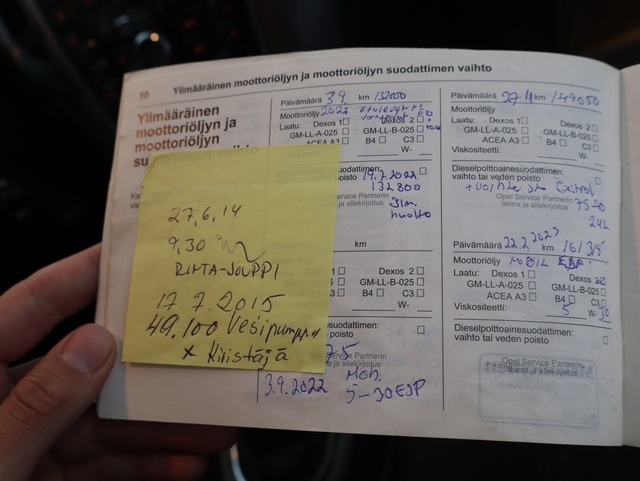 10 Ylimääräinen moottoriöljyn ja moottoriöljyn suodattimen vaihto
Ylimääräinen
moottoriöljyn ja
moottoriöljyn
27,6,14
9,30
RINTA-JOUPPI
17.7.2015
49.100 Vesipumppu
x Kiristäjä
Päivämäärä 3.9 km 132050
Moottoriöljy 2022
Laatu: Dexos 1 Dexos 2
GM-LL-A-025 GM-LL-B-025
ACEA A3 B4 C3
W-
suodattimen:
poisto 17.7.2021
132 800
Ilm.
huolto
km
Dexos 2
GM-LL-B-025
B4 C3
W-
suodattimen:
poisto
3.9.2022
5-30
Päivämäärä 27.4 km 149050
Moottoriöljy
Laatu: Dexos 1 Dexos 2
GM-LL-A-025 GM-LL-B-025
ACEA A3 B4 C3
Viskositeetti: W-
Dieselpolttoainesuodattimen:
vaihto tai veden poisto
Opel Service Partnerin
leima ja allekirjoitus
Päivämäärä 22.2 2023 km 161315
Moottoriöljy MOBIL ESP
Laatu: Dexos 1 Dexos 2
GM-LL-A-025 GM-LL-B-025
ACEA A3 B4 C3
Viskositeetti: 5 W- 30
Dieselpolttoainesuodattimen:
vaihto tai veden poisto
Opel Service Partnerin
leima ja allekirjoitus